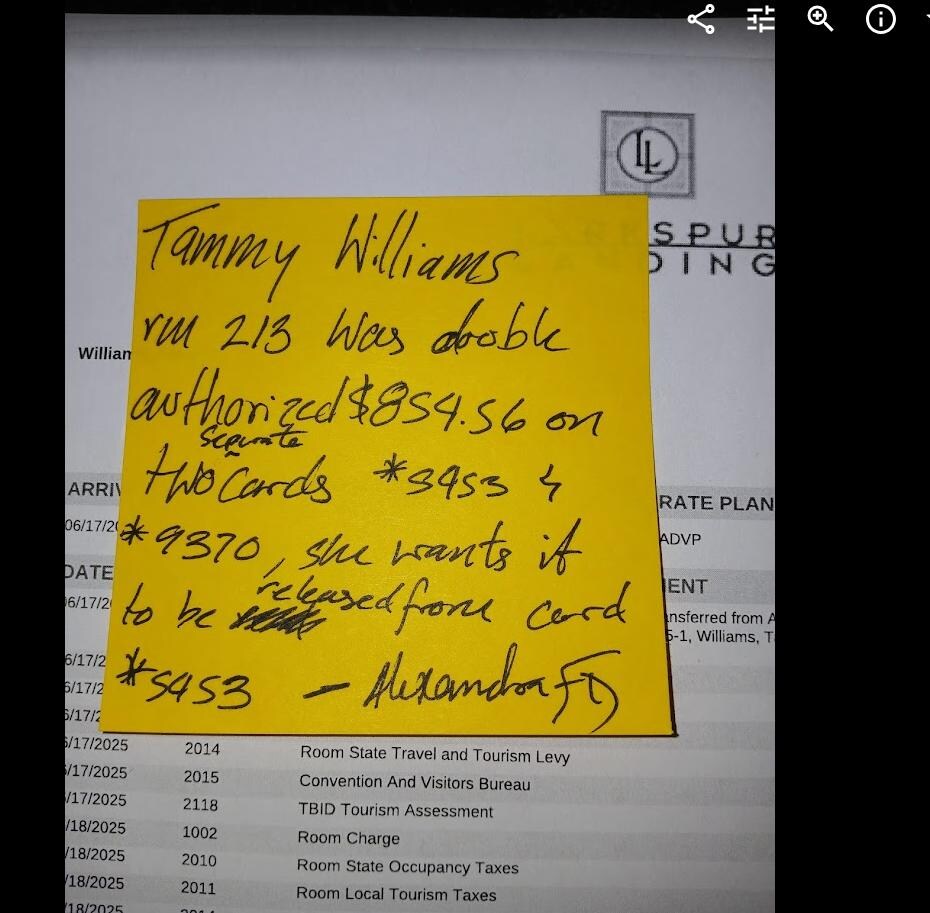 LL
SPUR
DING
Tammy Williams
rm 213 was double
authorized $854.56 on
two separate cards *3953 &
*9370, she wants it
to be released from card
*5953 - Alexandra FD
William
ARRIV
RATE PLAN
06/17/20
ADVP
DATE
MENT
06/17/20
ansferred from A
5-1, Williams, T
6/17/2
6/17/2
6/17/2
6/17/2025 2014 Room State Travel and Tourism Levy
/17/2025 2015 Convention And Visitors Bureau
/17/2025 2118 TBID Tourism Assessment
/18/2025 1002 Room Charge
/18/2025 2010 Room State Occupancy Taxes
/18/2025 2011 Room Local Tourism Taxes
/18/2025 2014